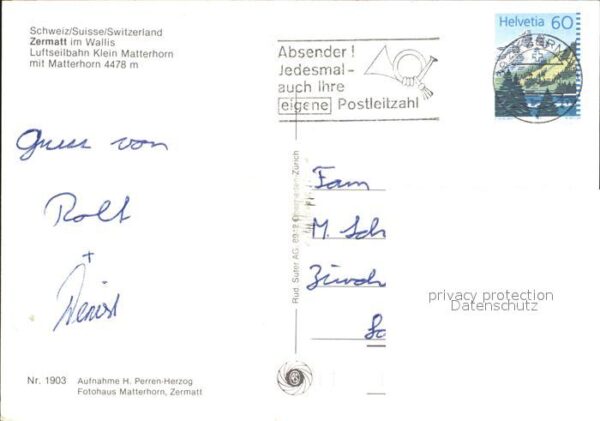 Schweiz/Suisse/Switzerland
Zermatt im Wallis
Luftseilbahn Klein Matterhorn
mit Matterhorn 4478 m
Absender!
Jedesmal-
auch ihre
eigene Postleitzahl
Helvetia 60
Gruss von
Rolf
+
Fam
M. Sch
Zürch
privacy protection
Datenschutz
Rud. Suter AG, Oberrieden-Zürich
Nr. 1903
Aufnahme H. Perren-Herzog
Fotohaus Matterhorn, Zermatt